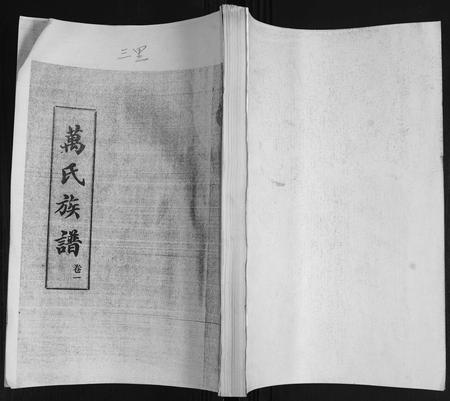 三里
萬氏族譜
卷一